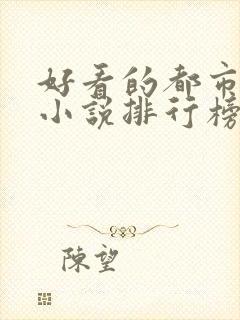 好看的都市
小说排行榜
陳望